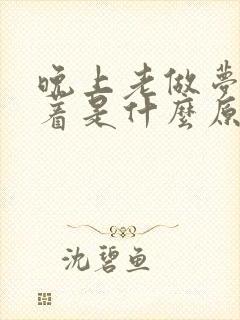 晚上老做夢
着是什麼原
沈碧鱼